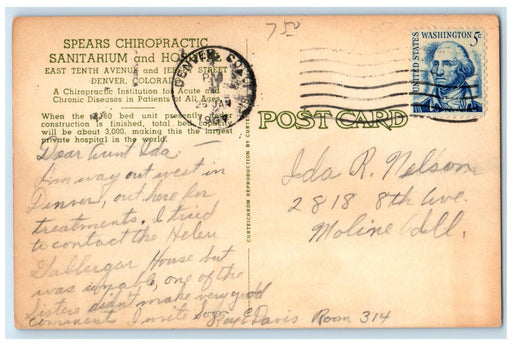 75¢
SPEARS CHIROPRACTIC
SANITARIUM and HOS
EAST TENTH AVENUE and JE STREET
DENVER, COLORAD
A Chiropractic Institution for Acute and
Chronic Diseases in Patients of All Ages
When the bed unit presently under
construction is finished, total bed capacity
will be about 3,000, making this the largest
private hospital in the world.
DENVER, COLO.
PM
25 JAN
UNITED STATES
WASHINGTON 5c
POST CARD
CURTEICHROM REPRODUCTION BY CURTEICH
Dear Aunt Ida -
Am way out west in
Denver, out here for
treatments. I tried
to contact the Helen
House but
was unable, one of the
Sisters didn't make very good
comments. I write soon
Roy E Davis Room 314
Ida R. Nelson
2818 8th Ave.
Moline Ill.